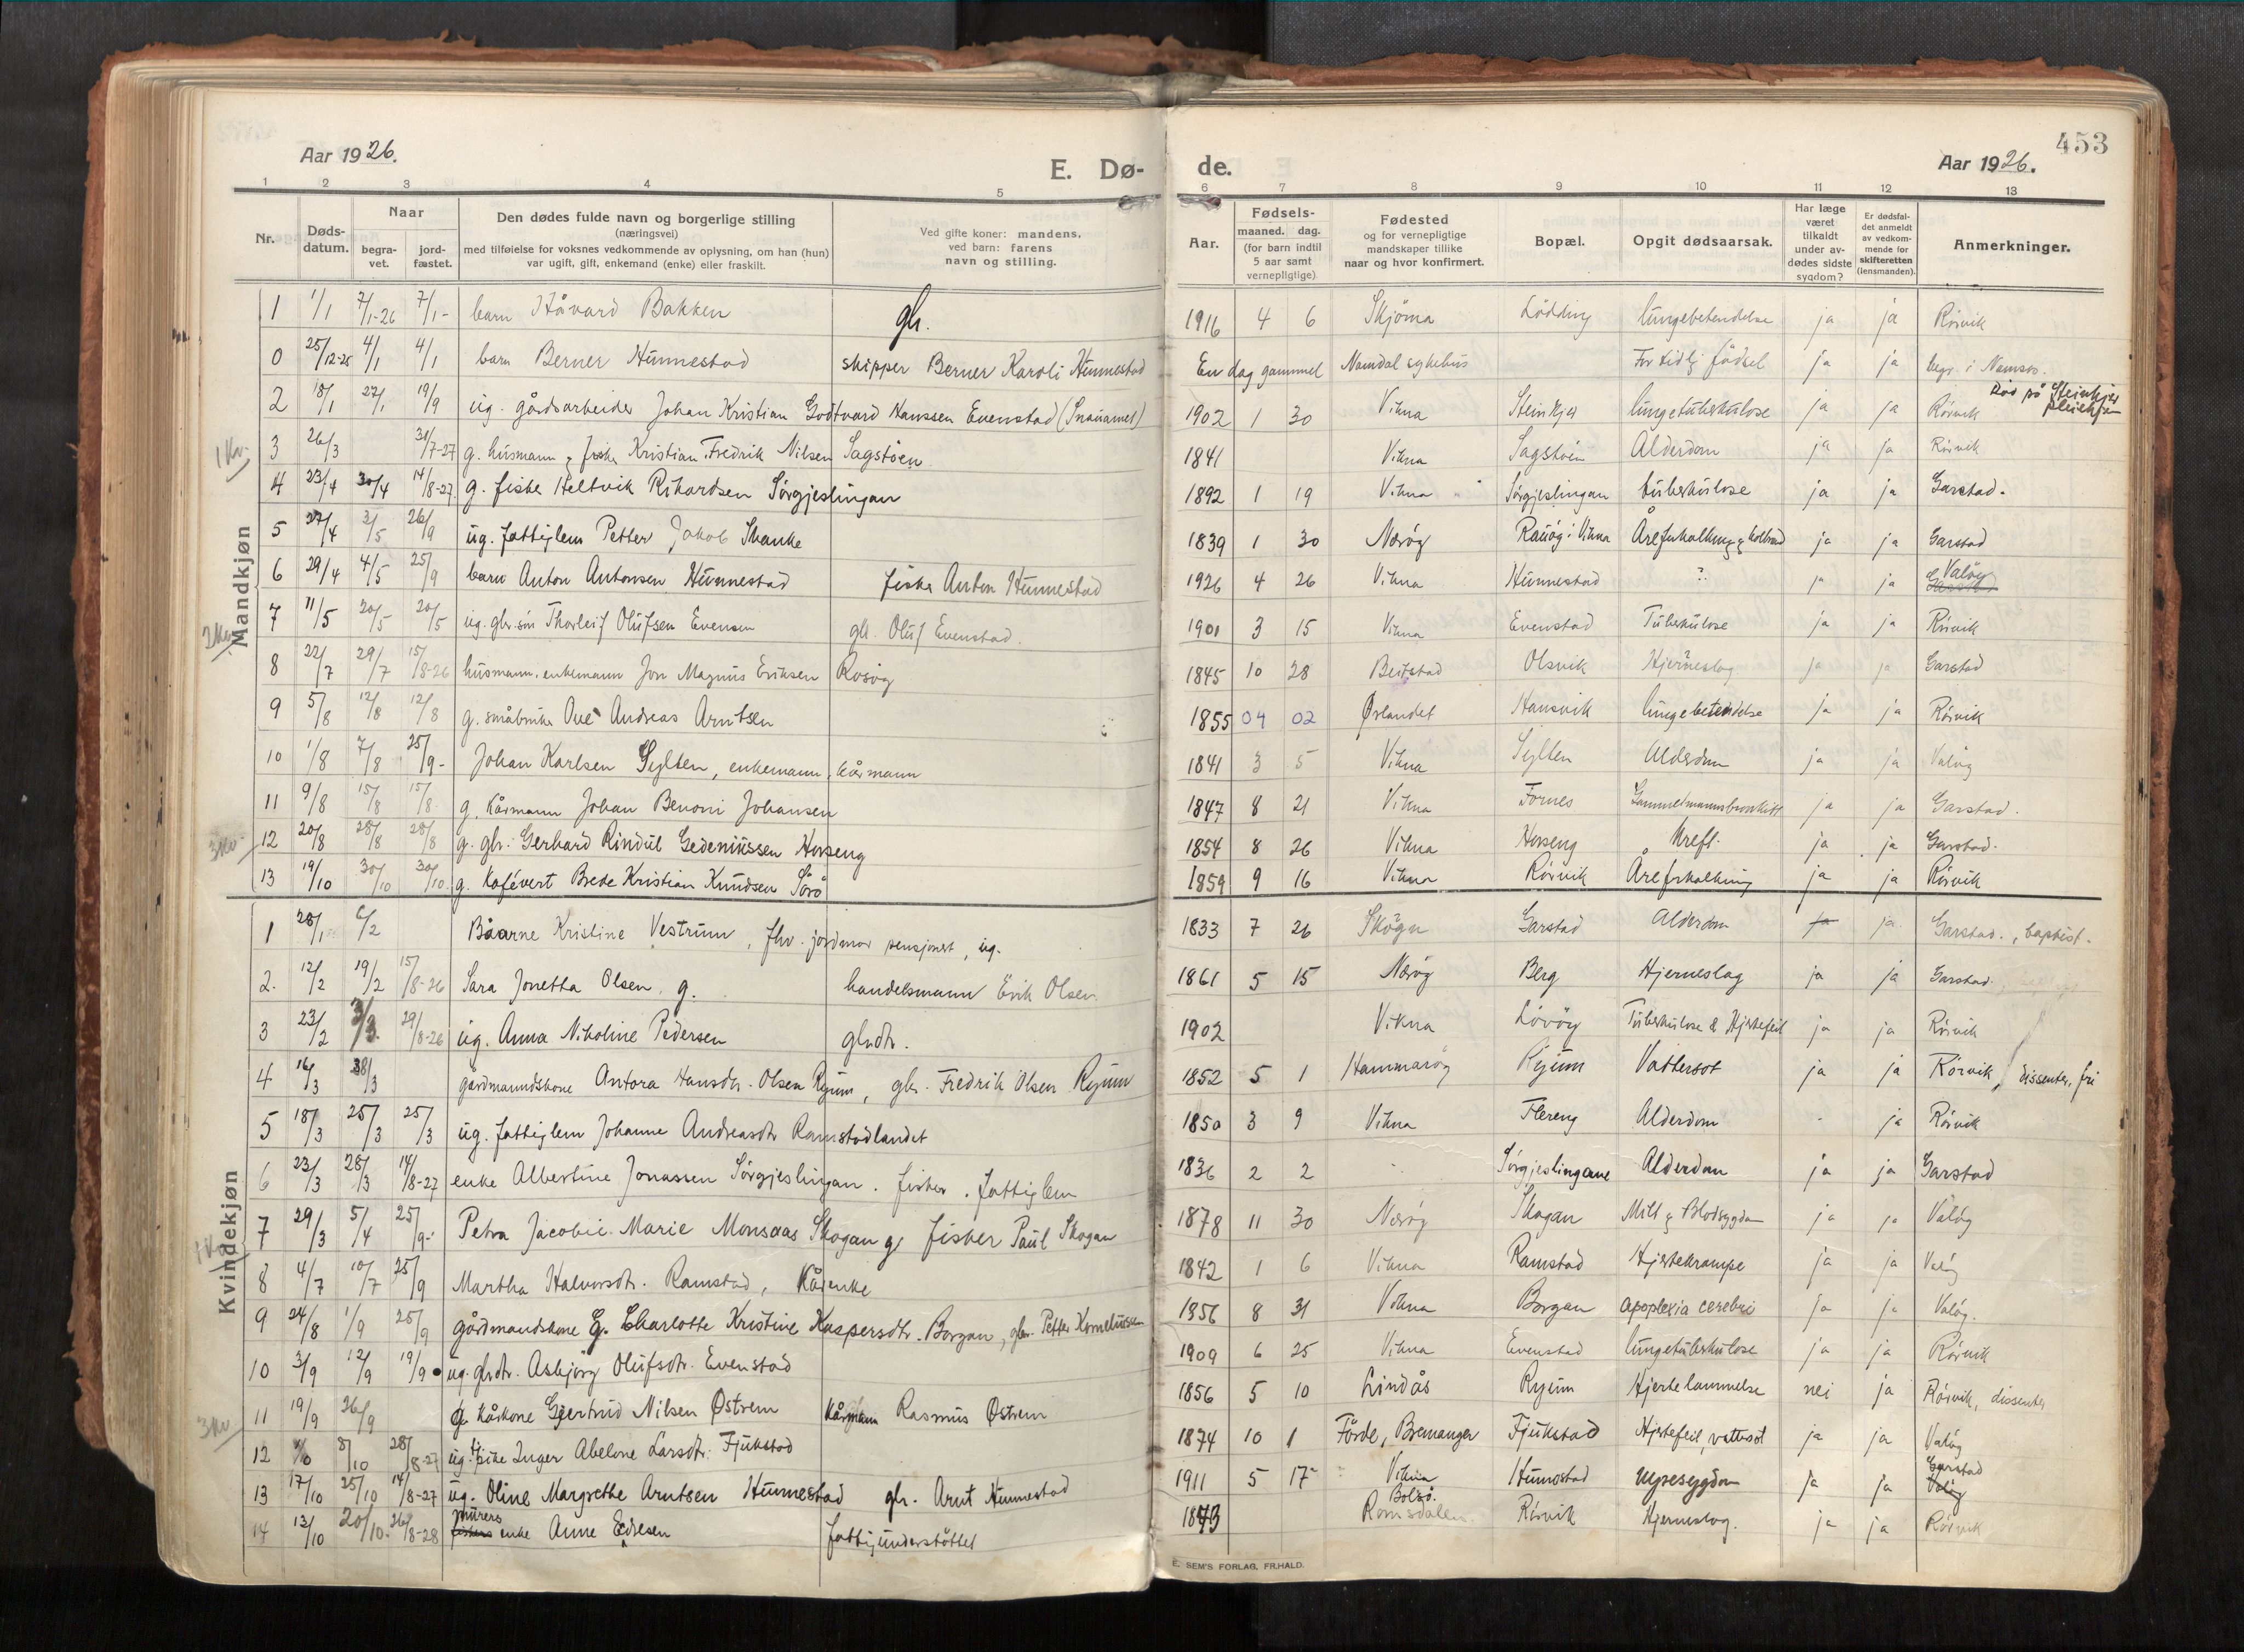 453
Aar 1926. E. Dø- de. Aar 1926.
1 2 3 4 5 6 7 8 9 10 11 12 13
Nr. Døds-datum. Naar begra-vet. jord-fæstet. Den dødes fulde navn og borgerlige stilling (næringsvei) med tilføielse for voksnes vedkommende av oplysning, om han (hun) var ugift, gift, enkemand (enke) eller fraskilt. Ved gifte koner: mandens. ved barn: farens navn og stilling. Aar. Fødsels- maaned. dag. (for barn indtil 5 aar samt vernepligtige) Fødested og for vernepligtige mandskaper tillike naar og hvor konfirmert. Bopæl. Opgit dødsaarsak. Har læge været tilkaldt under av-dødes sidste sygdom? Er dødsfal-det anmeldt av vedkom-mende for skifteretten (lensmanden). Anmerkninger.
Mandkjøn
1 1/1 7/1-26 7/1- barn Håvard Bakken gbr. 1916 4 6 Skjöma Lödding lungebetendelse ja ja Rörvik
0 25/12-25 4/1 4/1 barn Berner Hunnestad skipper Berner Karoli Hunnestad En dag gammel Namdal sykehus For tidlig födsel ja ja begr. i Namsos.
2 18/1 27/1 19/9 ug. gårdsarbeider Johan Kristian Godtvard Hanssen Evenstad 1902 1 30 Vikna Steinkjer lungetuberkulose ja ja Rörvik Död på Steinkjer pleiehjem
1 Kv. 3 26/3 31/7-27 g. husmann & fisker Kristian Fredrik Nilsen Sagstöen 1841 Vikna Sagstöen Alderdom ja ja Rörvik
4 23/4 30/4 14/8-27 g. fisker Heltvik Rikardsen Sörgjeslingan 1892 1 19 Vikna Sörgjeslingan tuberkulose ja ja Garstad.
5 27/4 3/5 26/9 ug. fattiglem Petter Jakob Skanke 1839 1 30 Næröy Rauög i Vikna Åreforkalkning & koldbrand ja ja Garstad
6 29/4 4/5 25/9 barn Anton Antonsen Hunnestad fisker Anton Hunnestad 1926 4 26 Vikna Hunnestad ? ja Valöy
2 Kv. 7 11/5 20/5 20/5 ug. gbr. sön Thorleif Olufsen Evensen gbr. Oluf Evenstad. 1901 3 15 Vikna Evenstad Tuberkulose ja ja Rörvik
8 22/7 29/7 15/8-26 husmann, enkemann Jon Magnus Eriksen Rosög 1845 10 28 Beitstad Olsvik Hjerneslag ja ja Garstad
9 5/8 12/8 12/8 g. småbruker Ove Andreas Arntsen 1855 04 02 Ørlandet Hansvik lungebetendelse ja ja Rörvik
10 1/8 7/8 25/9- Johan Karlsen Sylten, enkemann, kårmann 1841 3 5 Vikna Sylten Alderdom ja ja Valöy
11 9/8 15/8 15/8 g. kårmann Johan Benoni Johansen 1847 8 21 Vikna Fornes Gammelmannsbronkitt ja ja Garstad.
3 Kv. 12 20/8 28/8 28/8 g. gbr. Gerhard Rindul Gedeniussen Horseng 1854 8 26 Vikna Horseng Kreft. ja ja Garstad.
13 19/10 30/10 30/10. g. kafévert Brede Kristian Knudsen Sörö 1859 9 16 Vikna Rörvik Åreforkalkning ja ja Rörvik
Kvindekjøn
1 28/1 6/2 Båarne Kristine Vestrum, fhv. jordmor pensjonert, ug. 1833 7 26 Skogn Garstad Alderdom ja ja Garstad., baptist.
2. 12/2 19/2 15/8-26 Sara Jonetta Olsen g. handelsmann Erik Olsen. 1861 5 15 Næröy Berg Hjerneslag ja ja Garstad.
3 23/2 3/3. 29/8-26 ug. Anna Nikoline Pedersen gbrdtr. 1902 Vikna Lövöy Tuberkulose & Hjertefeil ja ja Rörvik
4 16/3 28/3 gårdmanndskone Antora Hansdtr. Olsen Ryum, gbr. Fredrik Olsen Ryum 1852 5 1 Hammaröy Ryum Vattersot ja ja Rörvik, dissenter, fri
5 18/3 25/3 25/3 ug. fattiglem Johanne Andreasdtr Ramstadlandet 1850 3 9 Vikna Flereng Alderdom - ja Rörvik
6 23/3 28/3 14/8-27 enke Albertine Jonassen Sörgjeslingan. fisker. fattiglem 1836 2 2 " Sörgjeslingane Alderdom ja ja Garstad
1 Kv 7 29/3 5/4 25/9- Petra Jacobie Marie Monsaas Skogan g. fisker Paul Skogan 1878 11 30 Næröy Skogan Milt & Blodsygdom ja ja Valöy
8 4/7 10/7 25/9 Martha Halvorsdtr. Ramstad, Kårenke 1842 1 6 Vikna Ramstad Hjertekrampe ja ja Valöy
9 24/8 1/9 25/9 gårdmandskone g. Charlotte Kristine Kaspersdtr. Borgan, gbr. Petter Korneliussen 1856 8 31 Vikna Borgan Apoplexia cerebri ja ja Valöy.
10 3/9 12/9 19/9 ug. gbrdtr. Asbjörg Olufsdtr. Evenstad 1909 6 25 Vikna Evenstad lungetuberkulose ja ja Rörvik
3 Kv 11 19/9 26/9 g. kårkone Gjertrud Nilsen Østrem kårmann Rasmus Østrem 1856 5 10 Lindås Ryum Hjertelammelse nei ja Rörvik, dissenter
12 8/10 28/8-27 ug. pike Inger Abelone Larsdtr. Fjukstad 1874 10 1 Förde, Bremanger Fjukstad Hjertefeil, vattersot ja ja Valöy
13 17/10 25/10 14/8-27 ug. Oline Margrethe Arntsen Hunnestad gbr. Arnt Hunnestad 1911 5 17 Vikna Hunnestad Nyresygdom ja ja Garstad Valöy
14 13/10 20/10. 26/8-28 murers fiskers enke Anne Edresen fattigunderstöttet 1843 Bolsö. Romsdalen. Rörvik Hjerneslag. ja ja Rörvik
E. SEM'S FORLAG, FR.HALD.